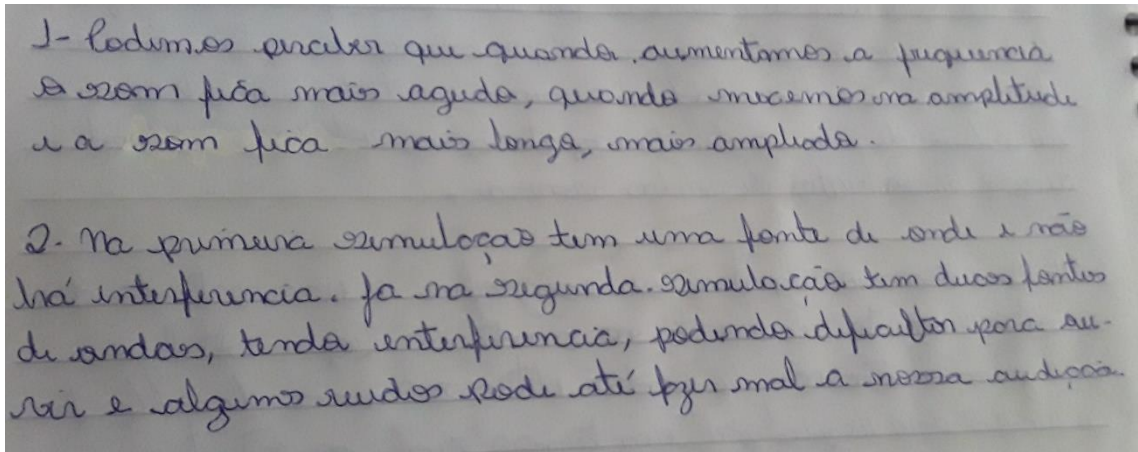 1- Podemos perceber que quando aumentamos a frequencia
o som fica mais agudo, quando mexemos na amplitude
e a som fica mais longo, mais ampliado.
2- Na primeira simulação tem uma fonte de onde e não
há interferencia. Ja na segunda simulação tem duas fontes
de ondas, tendo interferencia, podendo dificultar para ou-
vir e alguns ruidos pode até fazer mal a nossa audição.